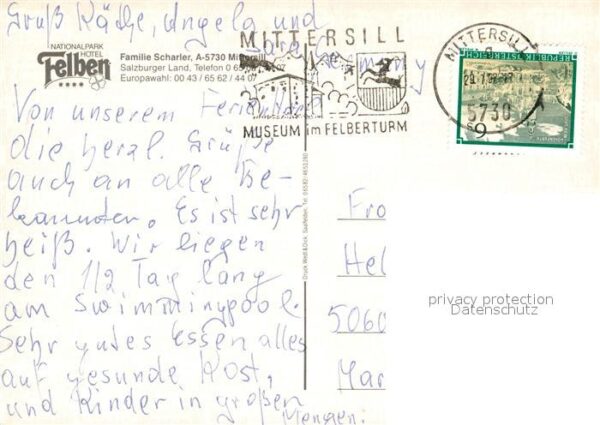 Gruß Käthe, Angela und
NATIONALPARK
HOTEL
Felben
Familie Scharler, A-5730 Mittersill
Salzburger Land, Telefon 0 65
Europawahl: 00 43 / 65 62 / 44 07
MITTERSILL
MUSEUM im FELBERTURM
MITTERSILL
5730
REPUBLIK ÖSTERREICH
Von unserem
die herzl. Grüße
auch an alle Be-
kannten. Es ist sehr
heiß. Wir liegen
den 1/2 Tag lang
am Swimmingpool.
Sehr gutes Essen alles
auf gesunde Kost,
und Kinder in großen
Mengen.
Fro
Hel
5060
Mar
privacy protection
Datenschutz